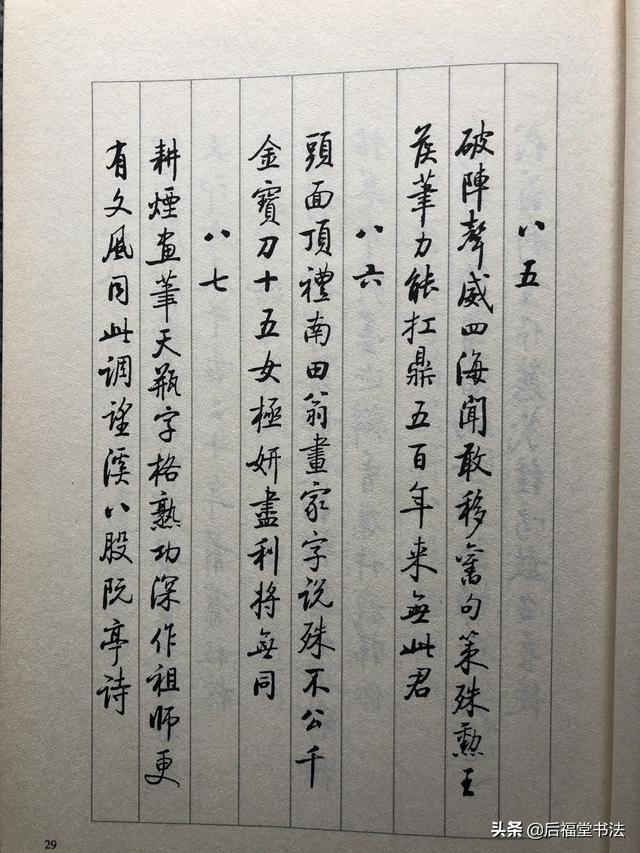 八五
破陣聲威四海聞敢移舊句策殊勳王
侯筆力能扛鼎五百年来無此君
八六
頭面頂禮南田翁畫家字説殊不公千
金寶刀十五女極妍盡利將無同
八七
耕煙畫筆天瓶字格熟功深作祖師更
有文風同此調望溪八股阮亭詩
29
头条 @后福堂书法